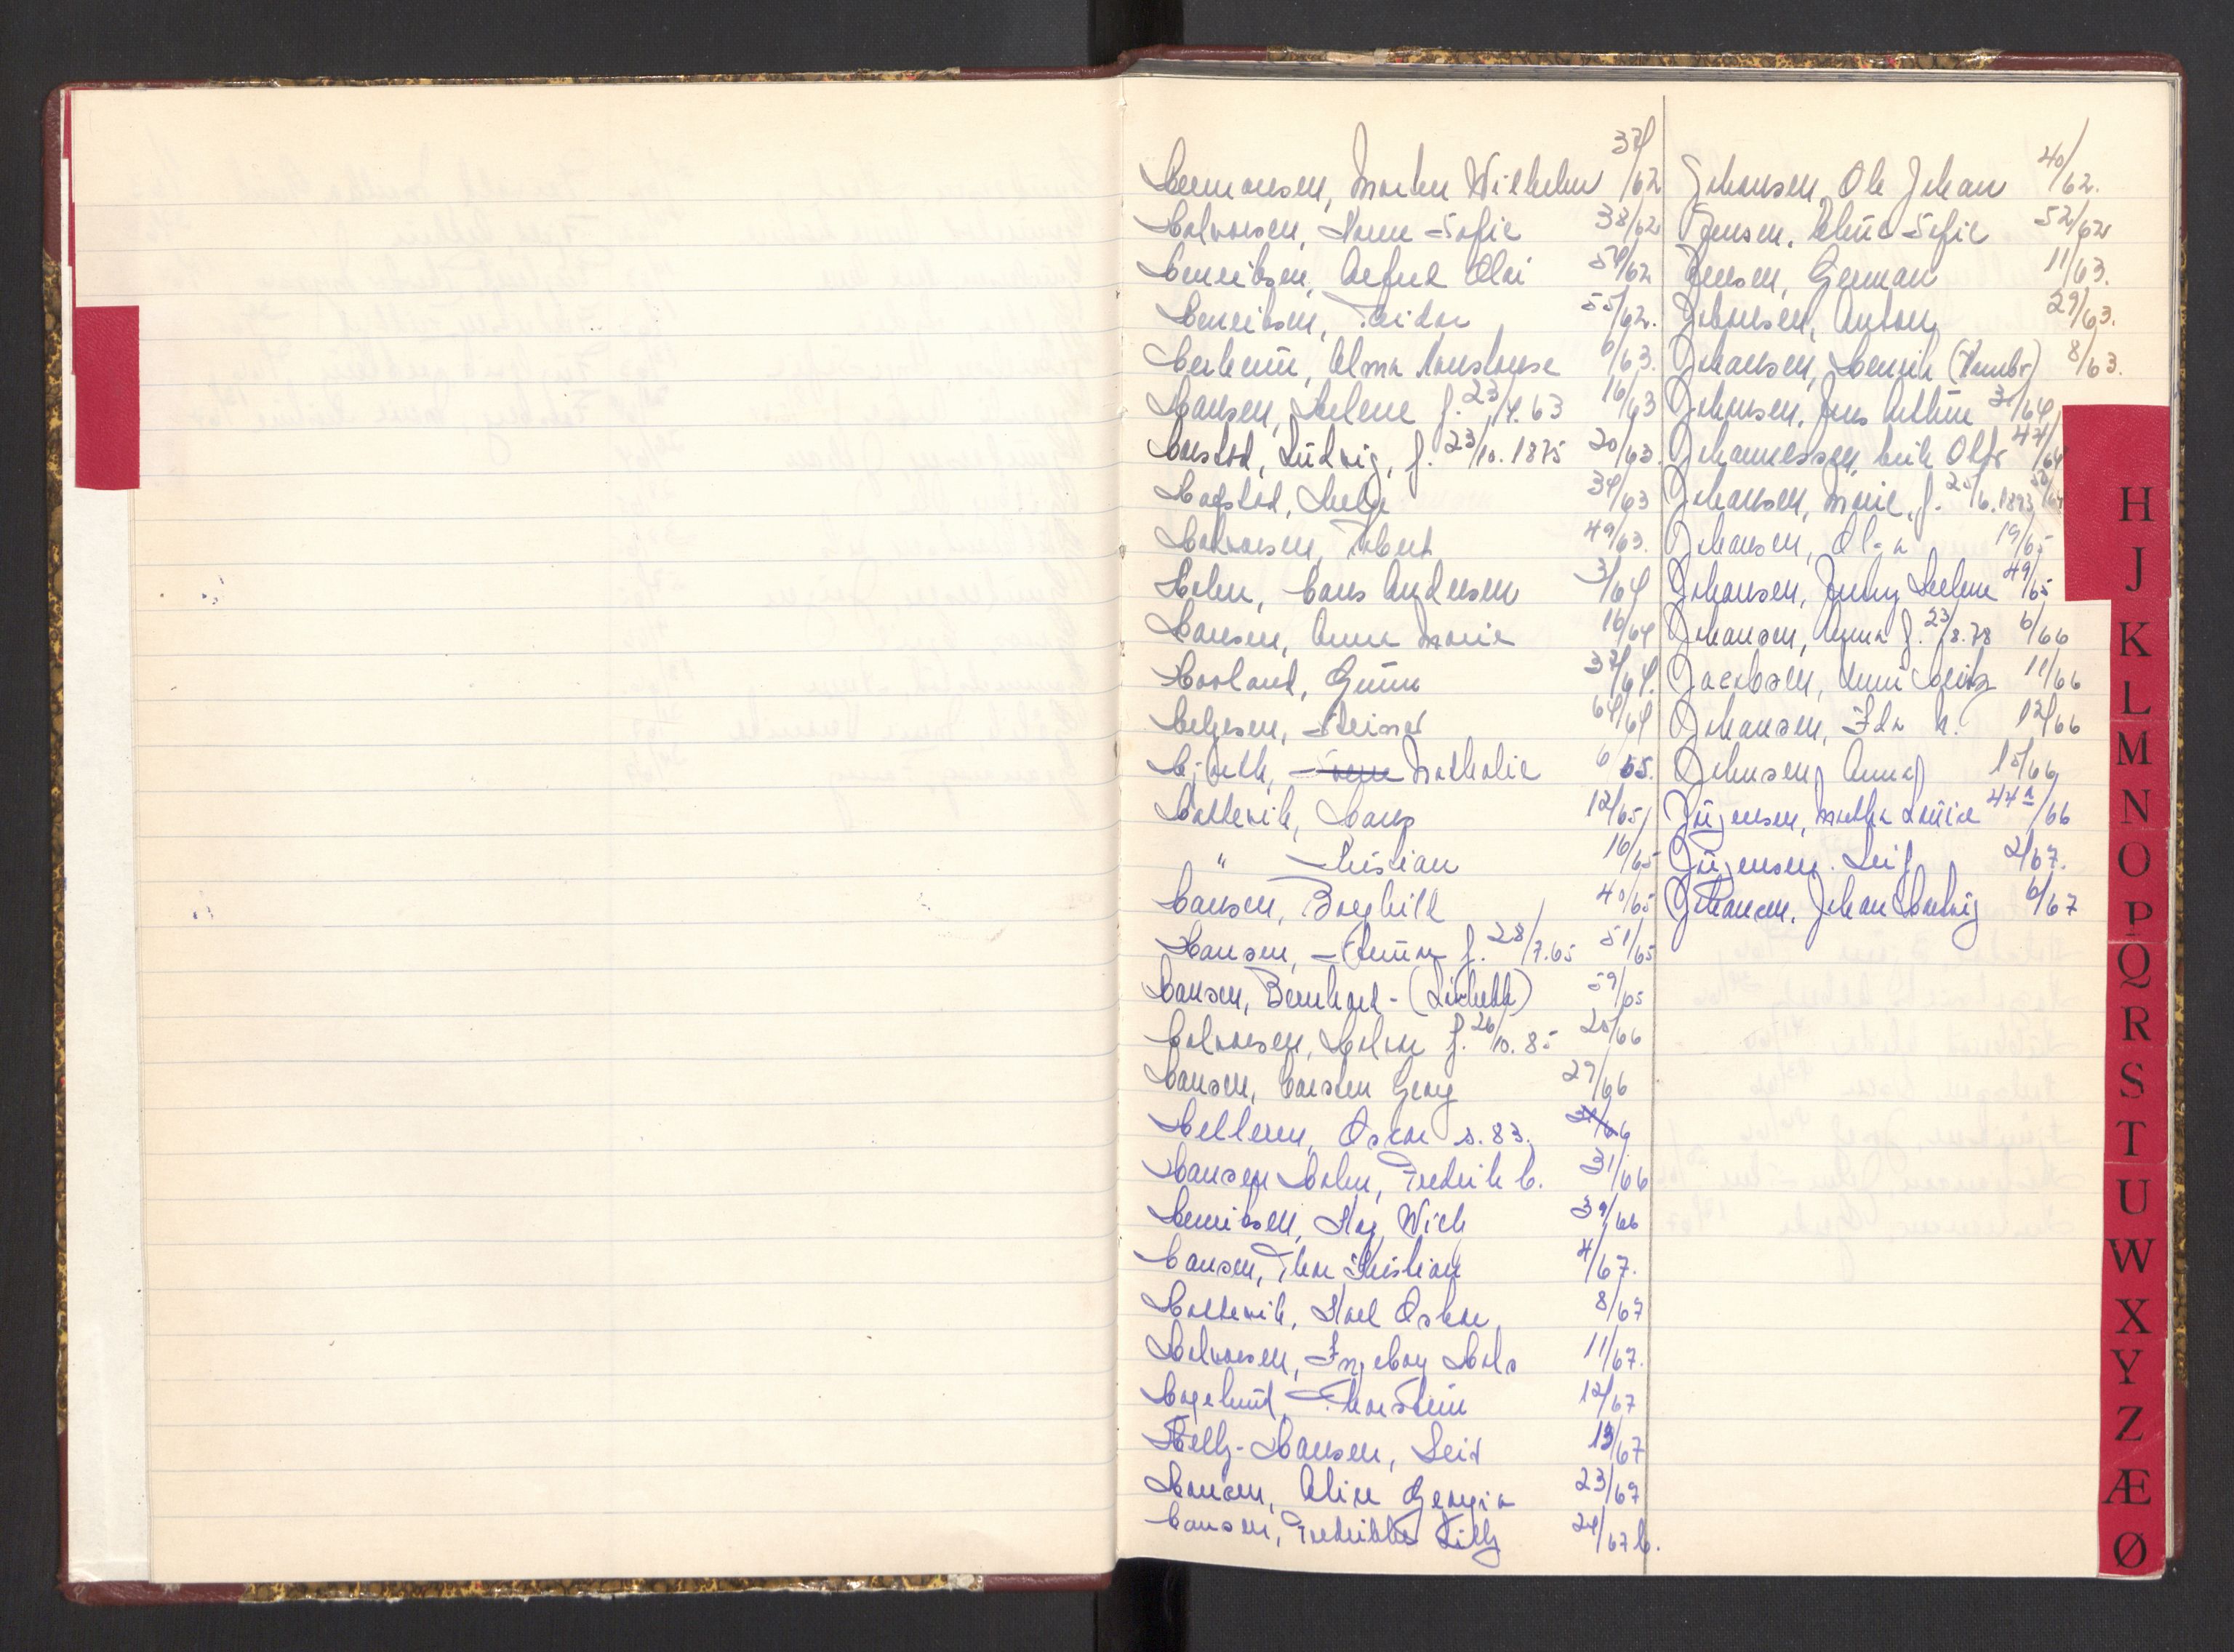 Hermansen, Morten Wilhelm 37/62
Halvorsen, Karen Sofie 38/62
Henriksen, Alfred Olai 54/62
Henriksen, Reidar 55/62.
Hansen, Helene f. 23/4.63 16/63
Harstad, Ludvig, f. 23/10.1875 20/63.
Hafstad, Helge 34/63
Halvorsen, Robert 49/63.
Holm, Hans Andersen 3/64
Hansen, Anna Marie 16/64
Haaland, Gunn 37/64.
Helgesen, Steinar 64/64
Mathalie 6 65.
Hattevik, Hans 12/65
" Kristian 16/65
Hansen, Borghild 40/65
Hansen, f. 28/7.65 51/65
Hansen, Bernhard - 59/65
Halvorsen, Halvor f. 26/10.85 25/66
Hansen, Carsten Georg 29/66
Helleren, Oscar s. 83. 31/66
Hansen Holm, Fredrik C. 31/66
Henriksen, Kay Wick 39/66
Hansen, Thor Kristian 4/67.
Hattevik, Karl Oskar 8/67
Halvorsen, Ingeborg 11/67.
Hagelund, Thorstein 12/67
Helly-Hansen, Leif 13/67
Hansen, Aline Georgia 23/67
Hansen, Fredrikke Lilly 24/67 b.
Johansen, Ole Johan 40/62.
Jensen, Sofie 52/62
Jensen, German 11/63.
Johansen, Anton 29/63.
Johansen, Henrik 8/63.
Johansen, Jens Arthur 3/64
Johannessen, Erik Olfr 44/64
Johansen, Marie, f. 25/6.1893 50/64
Johansen, Olga 19/65
Johansen, Jenny Helene 49/65
Johansen, Anna f. 23/8.78 6/66
Jacobsen, 11/66
Johansen, Ida A. 12/66
Johnsen, Anna 15/66
Jörgensen, Martha Louise 44a/66
Jörgensen. Leif 2/67.
Johansen. Johan Ludvig 6/67
H
J
K
L
M
N
O
P
Q
R
S
T
U
W
X
Y
Z
Æ
Ø